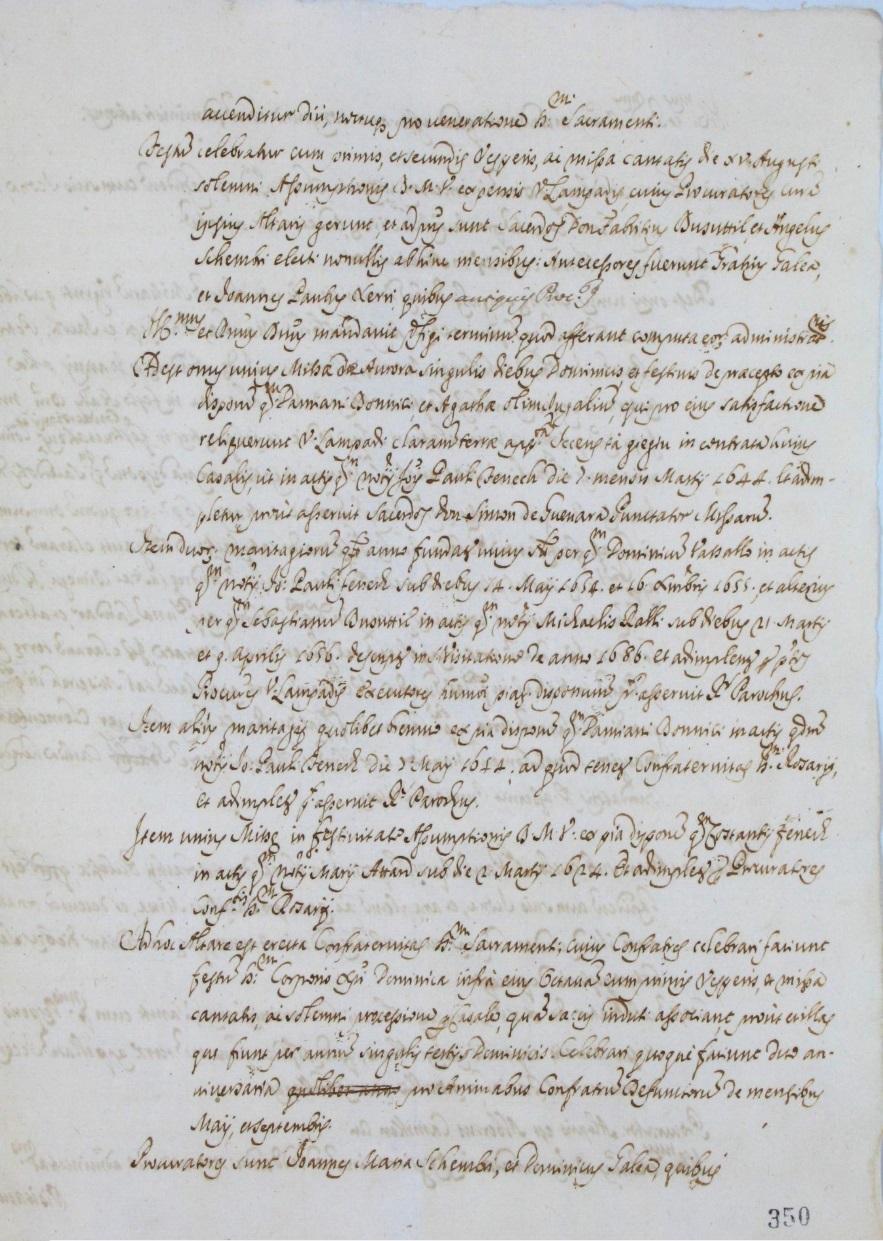 accenditur diu, noctuq3 pro ueneratione S.mi Sacramenti.
Festũ celebratur cum primis, et secundis Vesperis, ac missa cantatis die xv. Augusti
solemni Assumptionis B. M. V. expensis V. Lampadis cuius Procuratores curã
ipsius Altaris gerunt, et ad pñs sunt Sacerdos Don Fabritius Busuttil, et Angelus
Schembri electi nonnullis abhinc mensibus: Antecessores fuerunt Gratius Galea,
et Joannes Paulus Xerri quibus
Ill.mus et Rmus Dnus mandauit terminũ quod afferant computa eor. administrõis.
Adest onus unius Missæ de Aurora singulis diebus Dominicis, et festiuis de præcepto ex pia
disponẽ qm Damiani Bonnici, et Agathæ olim Jugaliũ, qui pro eius satisfactione
reliquerunt V. Lampadi clausuram terræ in contrata huius
Casalis, ut in actis qm Notij Jois Pauli Fenech die 7. mensis Martij 1644. Et adim-
pletur prout asseruit Sacerdos Don Simon de Gueuara Punctator Missarũ.
Item duor. maritagiorũ anno fundat. unius per qm Dominicũ Vassallo in actis
qm Notij Jo: Pauli Fenech sub diebus 14. Maij 1654. et 16 Xmbris 1655. et alterius
per qm Sebastianũ Busuttil in actis qm Notij Michaelis Ralli sub diebus 21 Martij
et 9. Aprilis 1656. descript. in S. Visitatione de anno 1686. et adimplent.
Procures V. Lampadis executores huiusmõi piar. disponum pt. asseruit Rs Parochus.
Item alius maritagij quolibet biennio ex pia disponẽ qm Damiani Bonnici in actis qdm
Notij Jo: Pauli Fenech die 7. Maij 1644. ad quod tenet. Confraternitas S.mi Rosarij,
et adimplet. pt. asseruit Rs Parochus.
Item unius Missæ in festiuitate Assumptionis B. M. V. ex pia disponẽ qm Costantij Fenech
in actis qm Notij Marij Attard sub die 2. Martij 1624. Et adimplet. p Procuratores
Conf.tis S.mi Rosarij.
Ad hoc Altare est erecta Confraternitas S.mi Sacramenti, cuius Confratres celebrari faciunt
festũ S.mi Corporis Xpi Dominica infra eius Octauã cum primis Vesperis, et missa
cantatis, ac solemni processione p Casale, quã saccis induti associant, prout et illas
quæ fiunt per annũ singulis tertijs Dominicis. Celebrari quoque faciunt duo an-
niuersaria quolibet anno pro Animabus Confratrũ Defunctorũ de mensibus
Maij, et septembris.
Procuratores sunt Joannes Maria Schembri, et Dominicus Galea, quibus
350